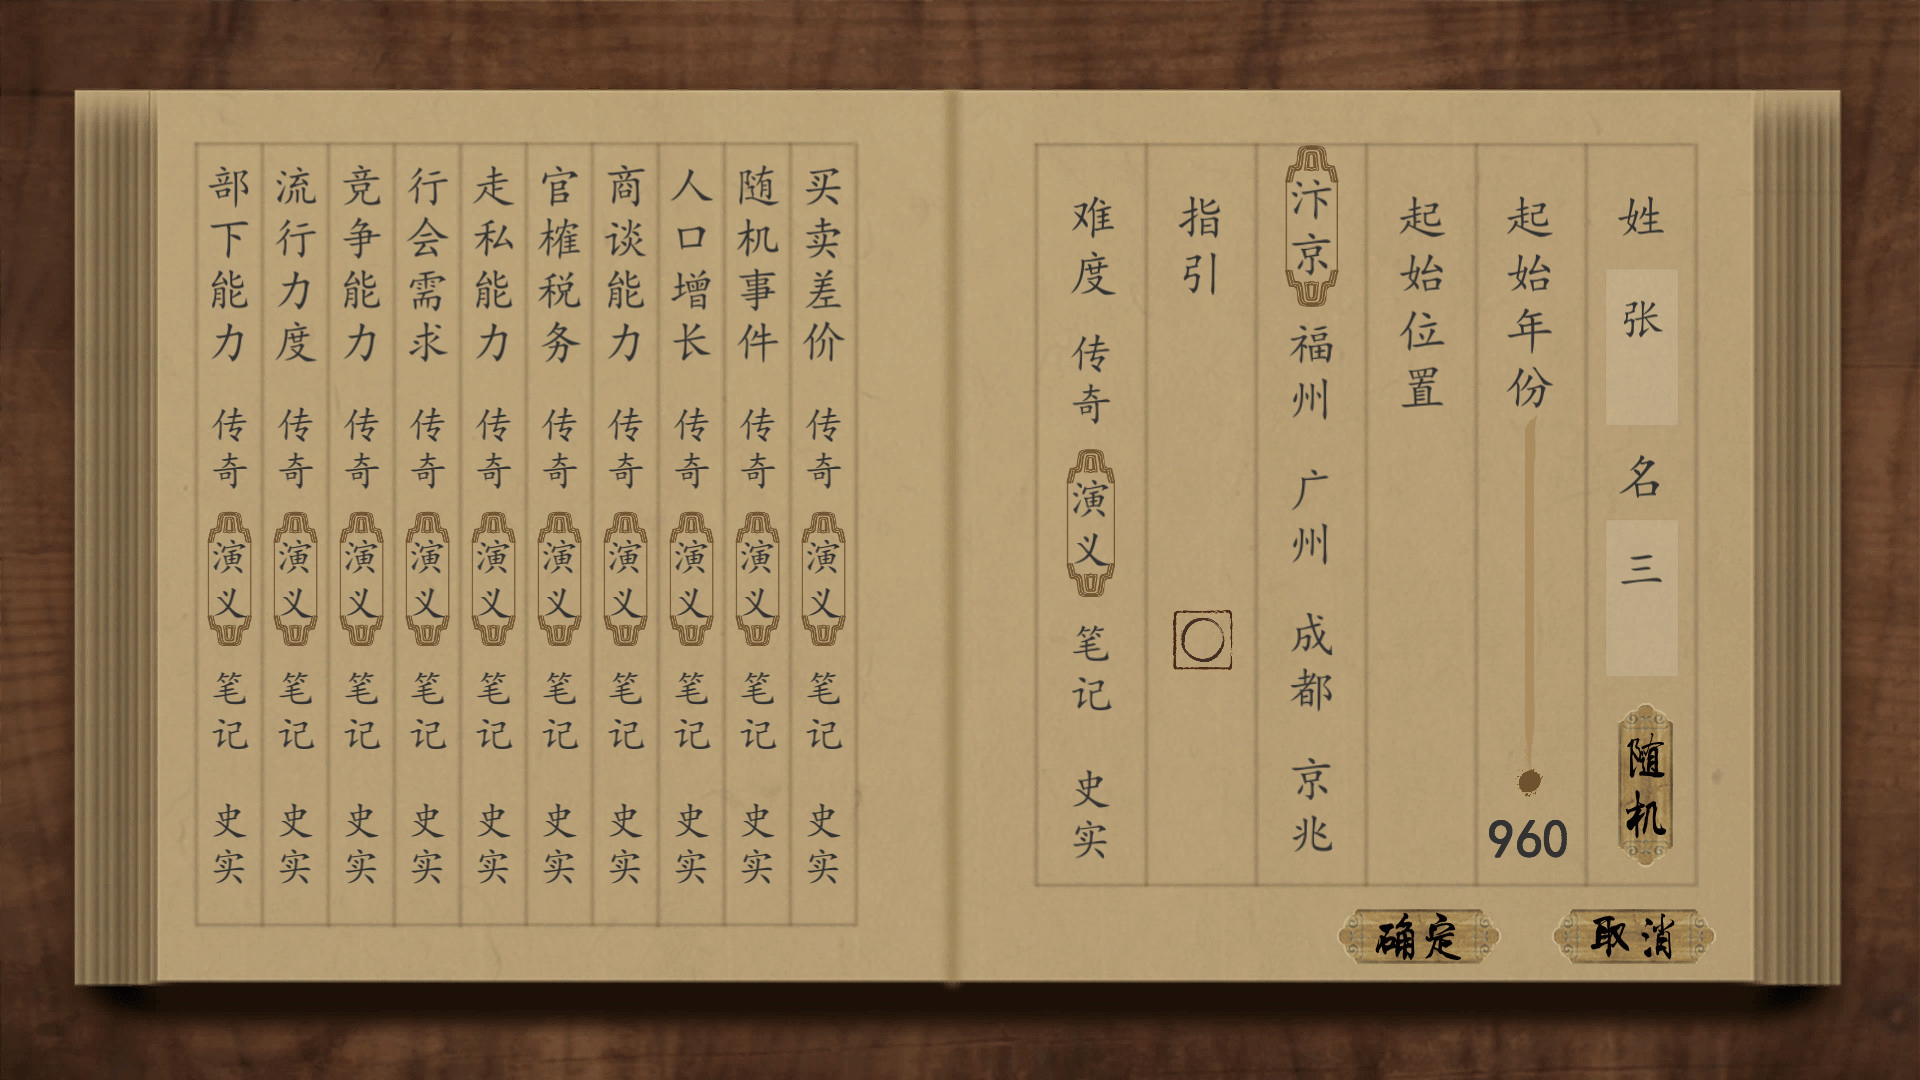 姓
张
名
三
随机
起始年份
960
起始位置
汴京
福州
广州
成都
京兆
指引
难度
传奇
演义
笔记
史实
确定
取消
买卖差价
传奇
演义
笔记
史实
随机事件
传奇
演义
笔记
史实
人口增长
传奇
演义
笔记
史实
商谈能力
传奇
演义
笔记
史实
官榷税务
传奇
演义
笔记
史实
走私能力
传奇
演义
笔记
史实
行会需求
传奇
演义
笔记
史实
竞争能力
传奇
演义
笔记
史实
流行力度
传奇
演义
笔记
史实
部下能力
传奇
演义
笔记
史实